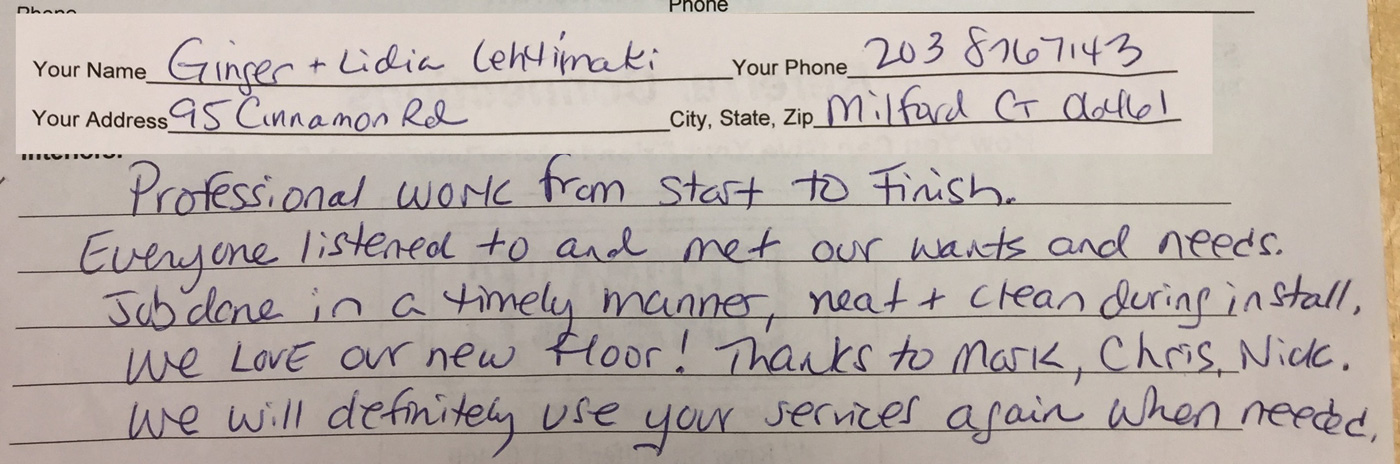 Phone
Your Name Ginger + Lidia Lehtimaki Your Phone 203 8767143
Your Address 95 Cinnamon Rd City, State, Zip Milford CT 06461
Professional work from start to Finish.
Everyone listened to and met our wants and needs.
Job done in a timely manner, neat + clean during install.
We LOVE our new floor! Thanks to Mark, Chris, Nick.
We will definitely use your services again when needed.